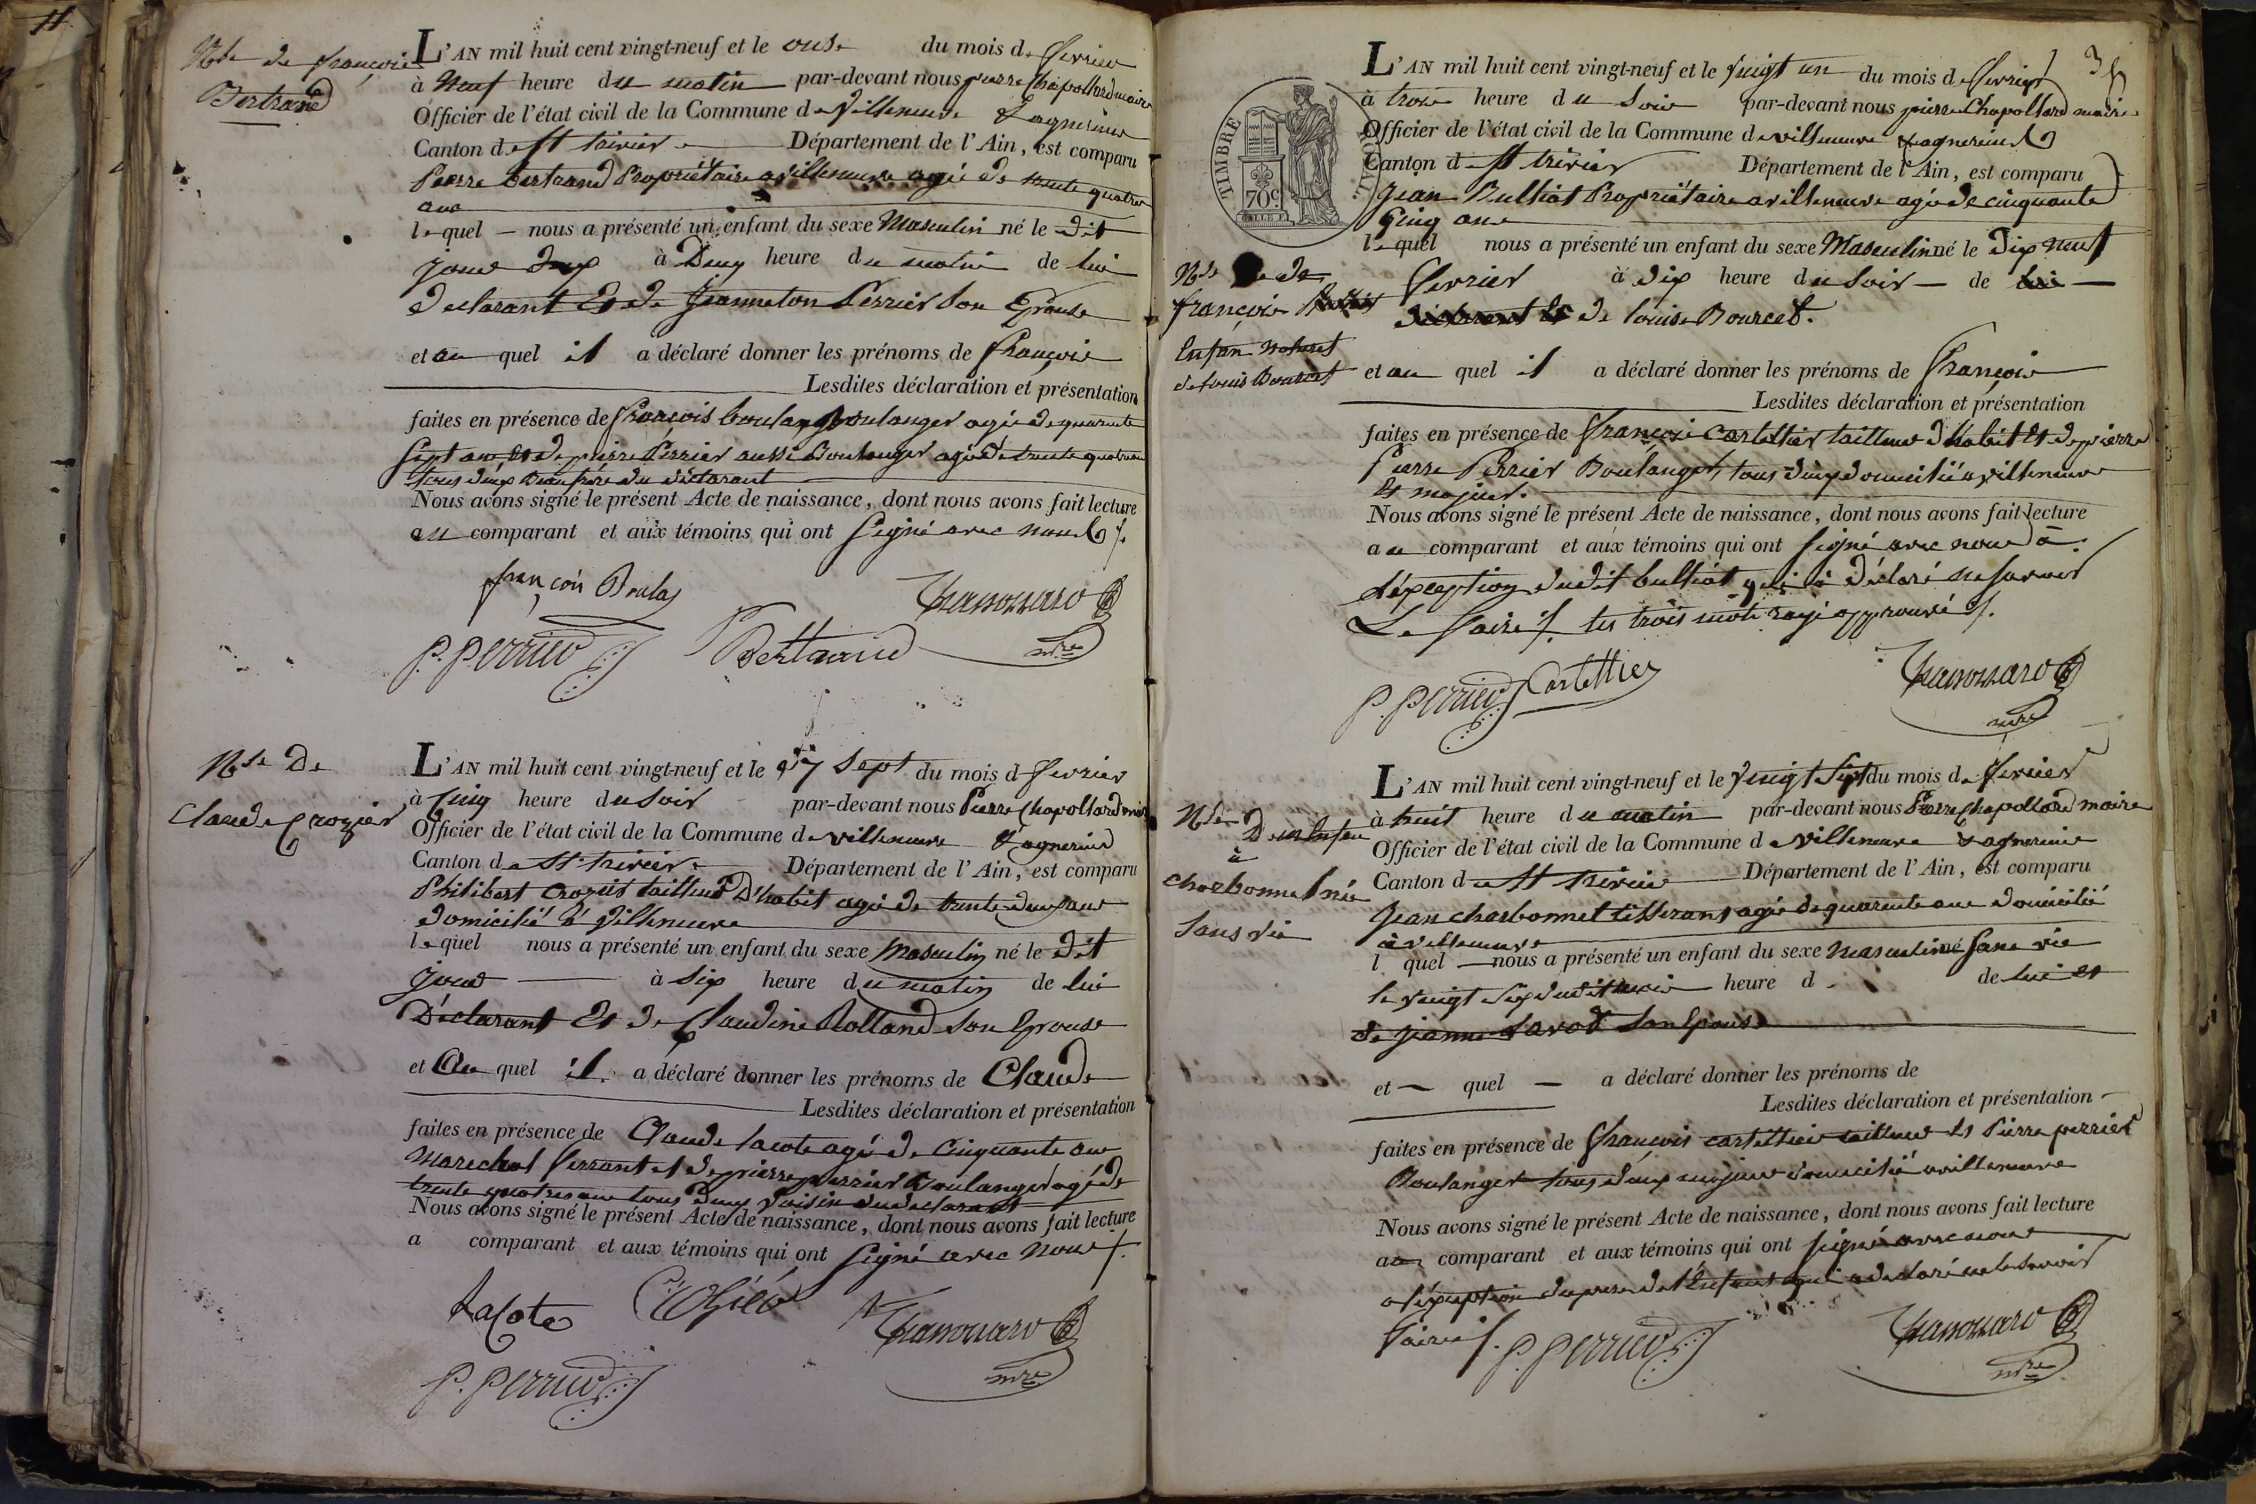 Nce de françois
Bertrand
L'AN mil huit cent vingt-neuf et le onze du mois de fevrier
à Neuf heure du matin par-devant nous pierre Chapollard maire
Officier de l'état civil de la Commune de Villeneuve & agnereins
Canton de St trivier Département de l'Ain, est comparu
Pierre Bertrand Propriétaire a villeneuve agé de trente quatre
ans
lequel nous a présenté un enfant du sexe Masculin né le dit
jour à Deux heure du matin de lui
declarant Et de Jeanneton Perrier Son Epouse
et au quel il a déclaré donner les prénoms de françois
Lesdites déclaration et présentation
faites en présence de françois boulas Boulanger agée de quarante
Sept ans et de pierre Perrier aussi Boulanger agé de trente quatre ans
tous deux Beaufrére du déclarant
Nous avons signé le présent Acte de naissance, dont nous avons fait lecture
au comparant et aux témoins qui ont signé avec nous
françois Boulas
P. Perrier Bertrand mre
Nce De
Claude Crozier
L'AN mil huit cent vingt-neuf et le dix Sept du mois d fevrier
à Cinq heure du Soir par-devant nous Pierre Chapollard maire
Officier de l'état civil de la Commune de villeneuve & agnereins
Canton de St trivier Département de l'Ain, est comparu
Philibert Crozier tailleur D'habit agé de trente deux ans
domicilié à Villeneuve
lequel nous a présenté un enfant du sexe Masculin né le dit
jour à Six heure du matin de lui
Déclarant Et de Claudine Rolland Son Epouse
et Au quel il a déclaré donner les prénoms de Claude
Lesdites déclaration et présentation
faites en présence de Claude lacote agé de Cinquante ans
Marechal ferrant et de pierre perrier Boulanger agé de
trente quatre ans tous deux Voisin du declarant
Nous avons signé le présent Acte de naissance, dont nous avons fait lecture
a comparant et aux témoins qui ont signé avec nous
lacote Crozier
P. Perrier mre
35
TIMBRE ROYAL
70 c
L'AN mil huit cent vingt-neuf et le vingt un du mois d fevrier
à trois heure du Soir par-devant nous pierre Chapollard maire
Officier de l'état civil de la Commune de villeneuve & agnereins
Canton d St trivier Département de l'Ain, est comparu
Jean Bulliat Propriétaire a villeneuve agé de cinquante
Cinq ans
lequel nous a présenté un enfant du sexe Masculin né le dix neuf
fevrier à dix heure du Soir de lui
declarant Et de louise Bourcet.
Nce de
françois
Enfan naturel
de louis Bourcet
et au quel il a déclaré donner les prénoms de françois
Lesdites déclaration et présentation
faites en présence de françois Cartellier tailleur d'habit Et de pierre
Pierre Perrier Boulanger, tous deux domicilié a villeneuve
et majeur.
Nous avons signé le présent Acte de naissance, dont nous avons fait lecture
au comparant et aux témoins qui ont signé avec nous a
l'éxception dudit bulliat qui a déclaré ne savoir
Le faire les trois mots rayé approuvé
P. Perrier Cartellier mre
Nce D'un Enfan
à
Charbonnet née
Sans vie
L'AN mil huit cent vingt-neuf et le vingt Sept du mois de fevrier
à huit heure du matin par-devant nous Pierre Chapollard maire
Officier de l'état civil de la Commune de villeneuve & agnereins
Canton d St trivier Département de l'Ain, est comparu
Jean charbonnet tisserant agée de quarente ans domicilié
à villeneuve
l quel nous a présenté un enfant du sexe masculin né sans vie
le vingt Six dudit mois heure d de lui et
de jeanne Savod Son Epouse
et quel a déclaré donner les prénoms de
Lesdites déclaration et présentation
faites en présence de françois cartellier tailleur et Pierre perrier
Boulanger tous deux majeur domicilié a villeneuve
Nous avons signé le présent Acte de naissance, dont nous avons fait lecture
au comparant et aux témoins qui ont signé avec nous
a l'éxception du pere de l'Enfant qui a declaré ne le Savoir
faire
P. Perrier mre